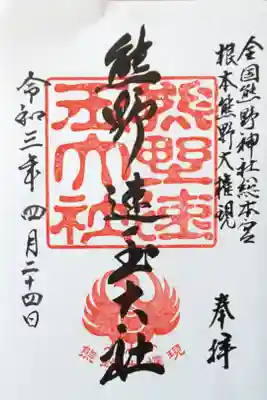 全国熊野神社総本宮
根本熊野大権現
奉拝
熊野速玉大社
熊野速玉大社
令和三年 四月二十四日